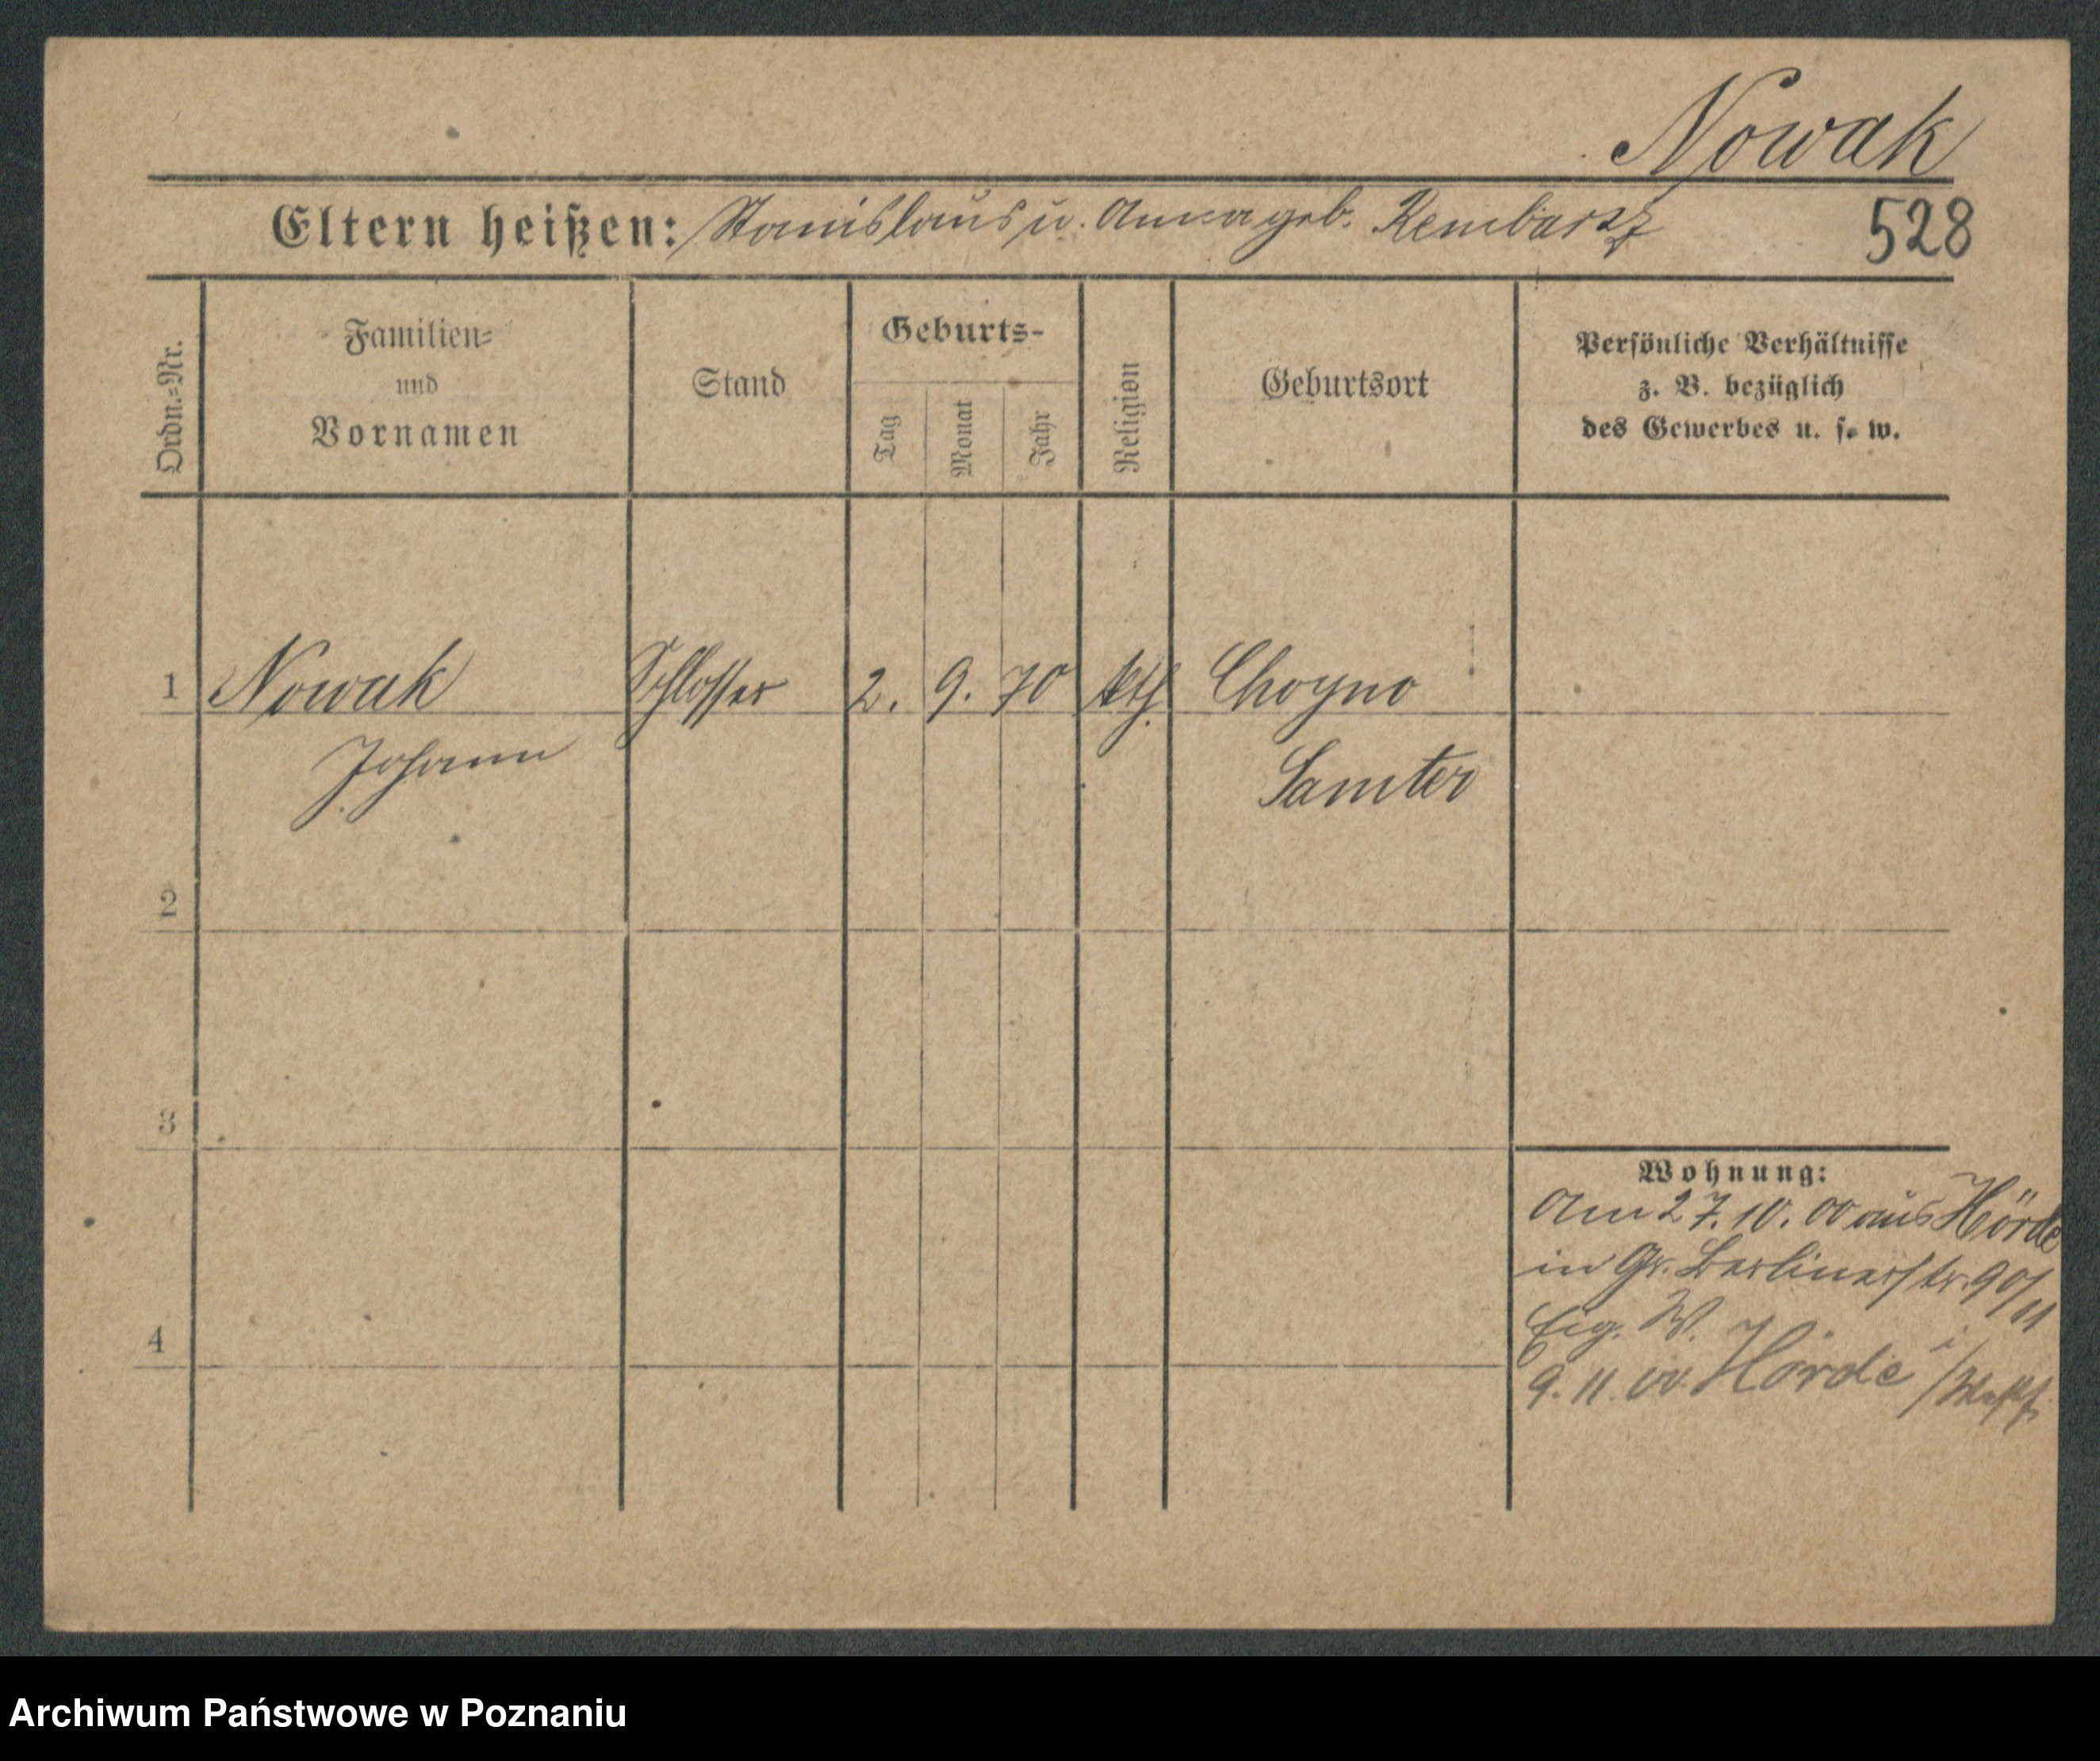 Nowak
Eltern heißen: Stanislaus u. Anna geb. Kembarsz
528
Ordn.-Nr.
Familien-
und
Vornamen
Stand
Geburts-
Tag
Monat
Jahr
Religion
Geburtsort
Persönliche Verhältnisse
z. B. bezüglich
des Gewerbes u. s. w.
1 Nowak Schlosser 2. 9. 70 kth. Choyno
Johann Samter
2
3
Wohnung:
Am 27.10.00 aus Hörde
in Gr. Berlinerstr. 90/11
Eig. W.
4
9.11.00. Hörde i/Westf.
Archiwum Państwowe w Poznaniu